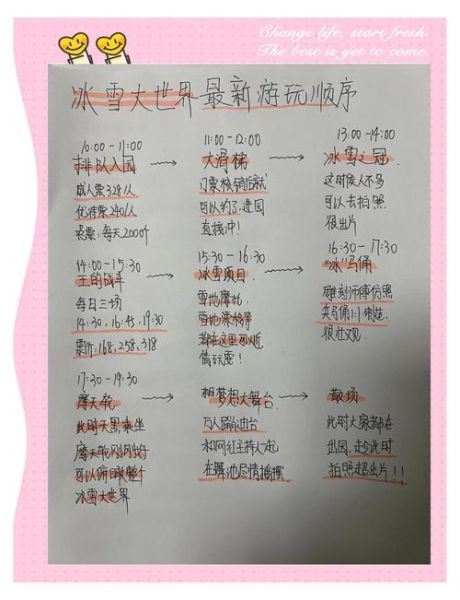 Change life, start fresh.
The best is yet to come.
冰雪大世界最新游玩顺序
10:00-11:00
排队入园
成人票328/人
优待票240/人
采票:每天2000个
11:00-12:00
大滑梯
门票核销后就
可以约了,进园
直接冲!
13:00-14:00
冰雪之冠
这时候人不多
可以去拍照
很出片
14:00-15:30
王的战车
每日三场
14:30,16:45,19:30
票价:168,258,318
15:30-16:30
冰雪项目
雪地摩托
雪地漂移等
都在这里可以
情玩耍!
16:30-17:30
冰马俑
雕刻师傅仿照
兵马俑1:1制造
很壮观
17:30-19:30
摩天轮
此时天黑乘坐
摩天轮刚刚好
可以俯瞰整个
冰雪大世界
梦想大舞台
万人蹦迪台
和网红主持人一起
在舞池尽情摇摆
散场
此时大家都在
出园,趁此时
拍照超出片!!